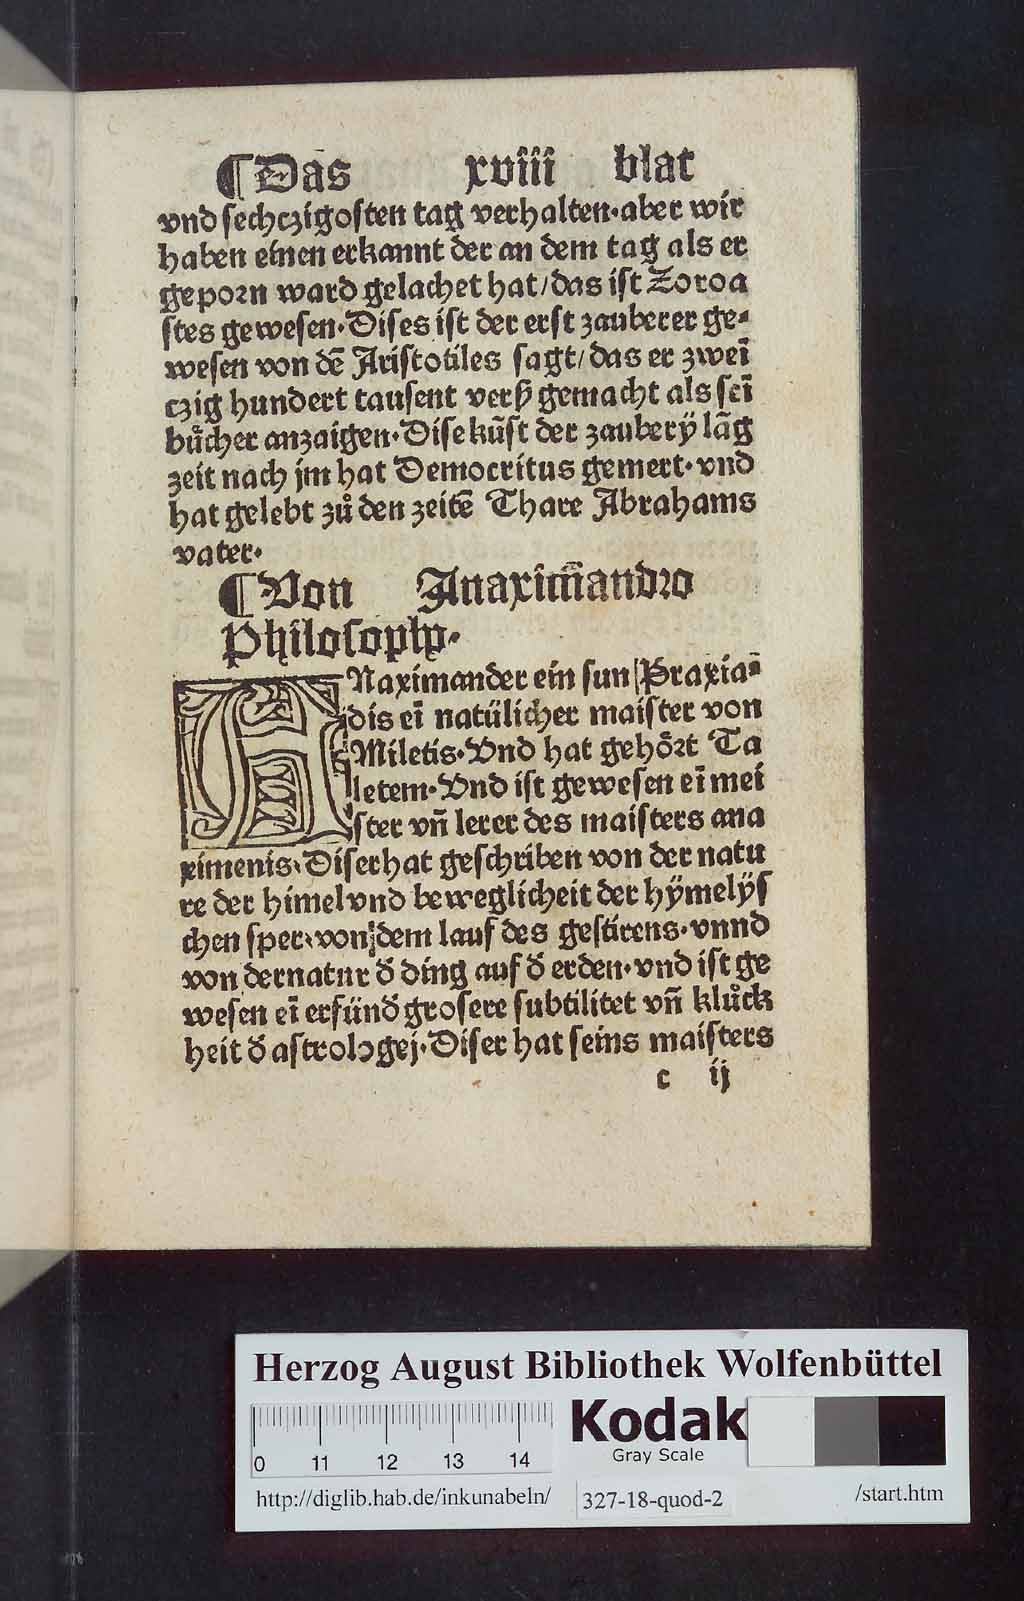 ¶Das xviii blat
vnd sechczigosten tag verhalten·aber wir
haben einen erkannt der an dem tag als er
geporn ward gelachet hat/das ist Zoroa
stes gewesen·Dises ist der erst zauberer ge⸗
wesen von dē Aristotiles sagt/das er zweī
czig hundert tausent verß gemacht als seī
bůcher anzaigen·Dise kūst der zauberÿ lāg
zeit nach jm hat Democritus gemert·vnd
hat gelebt zů den zeitē Thare Abrahams
vater·
¶Von Anaxim̄andro
Philosopho·
ANaximander ein sun Praxia⸗
dis eī natülicher maister von
Miletis·Vnd hat gehört Ta
letem·Vnd ist gewesen eī mei
ster vn̄ lerer des maisters ana
ximenis·Diser hat geschriben von der natu
re der himel vnd beweglicheit der hÿmelÿs
chen sper·von dem lauf des gestirens·vnnd
von der natur d̄ ding auf d̄ erden·vnd ist ge
wesen eī erfünd̄ grosere subtilitet vn̄ klůck
heit d̄ astrologej·Diser hat seins maisters
c ij
Herzog August Bibliothek Wolfenbüttel
Kodak
Gray Scale
0 11 12 13 14
http://diglib.hab.de/inkunabeln/ 327-18-quod-2 /start.htm